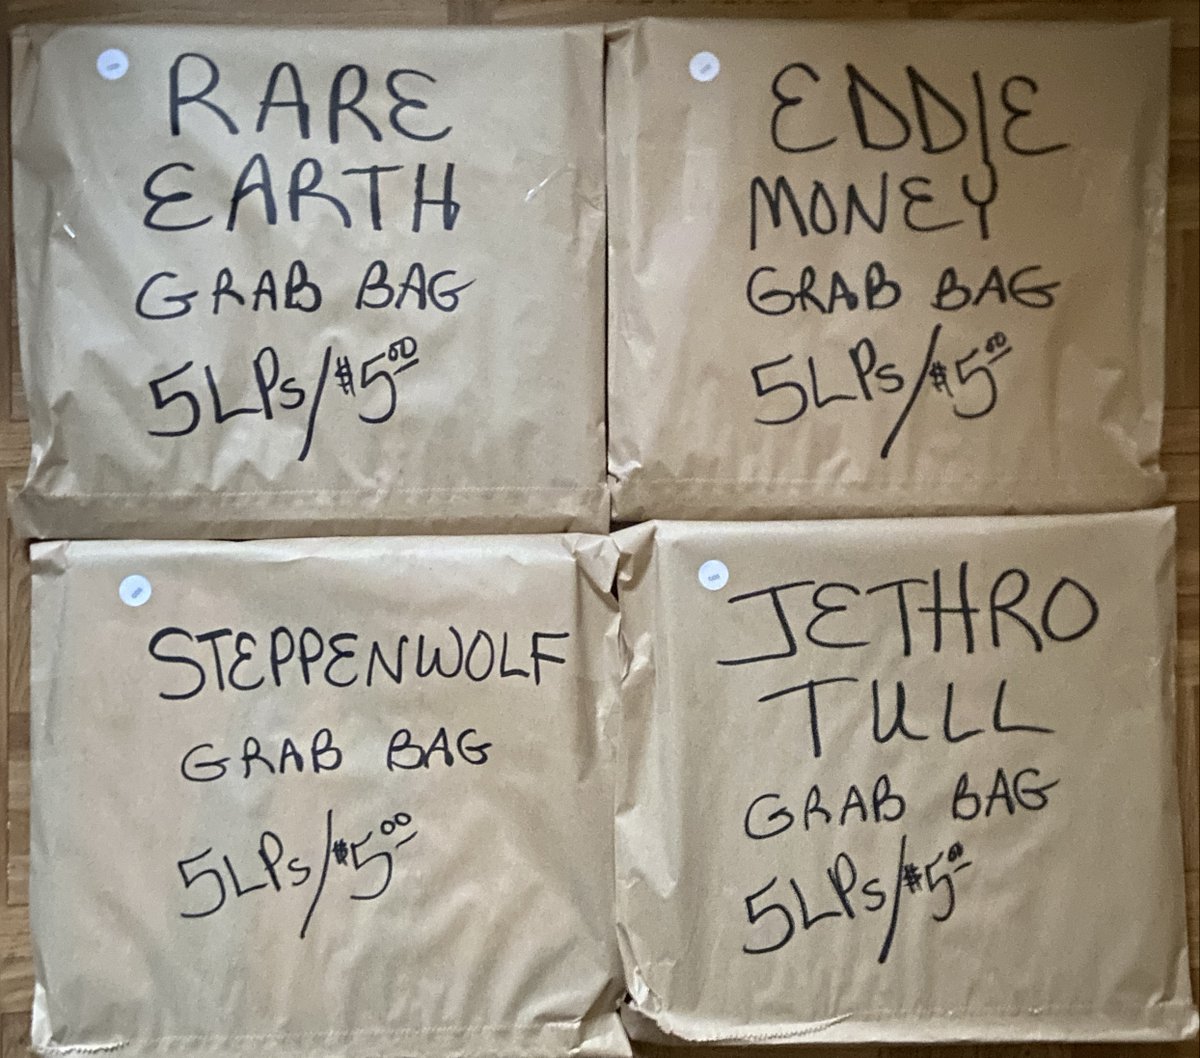 RARE
EARTH
GRAB BAG
5 LPs/$5.00
EDDIE
MONEY
GRAB BAG
5 LPs/$5.00
STEPPENWOLF
GRAB BAG
5 LPs/$5.00
JETHRO
TULL
GRAB BAG
5 LPs/$5.00